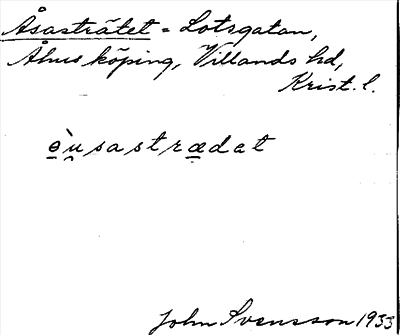 Åsasträtet = Lotsgatan,
Åhus köping, Villands hd,
Krist. l.
ə̀u̯sastrædat
John Svensson 1933